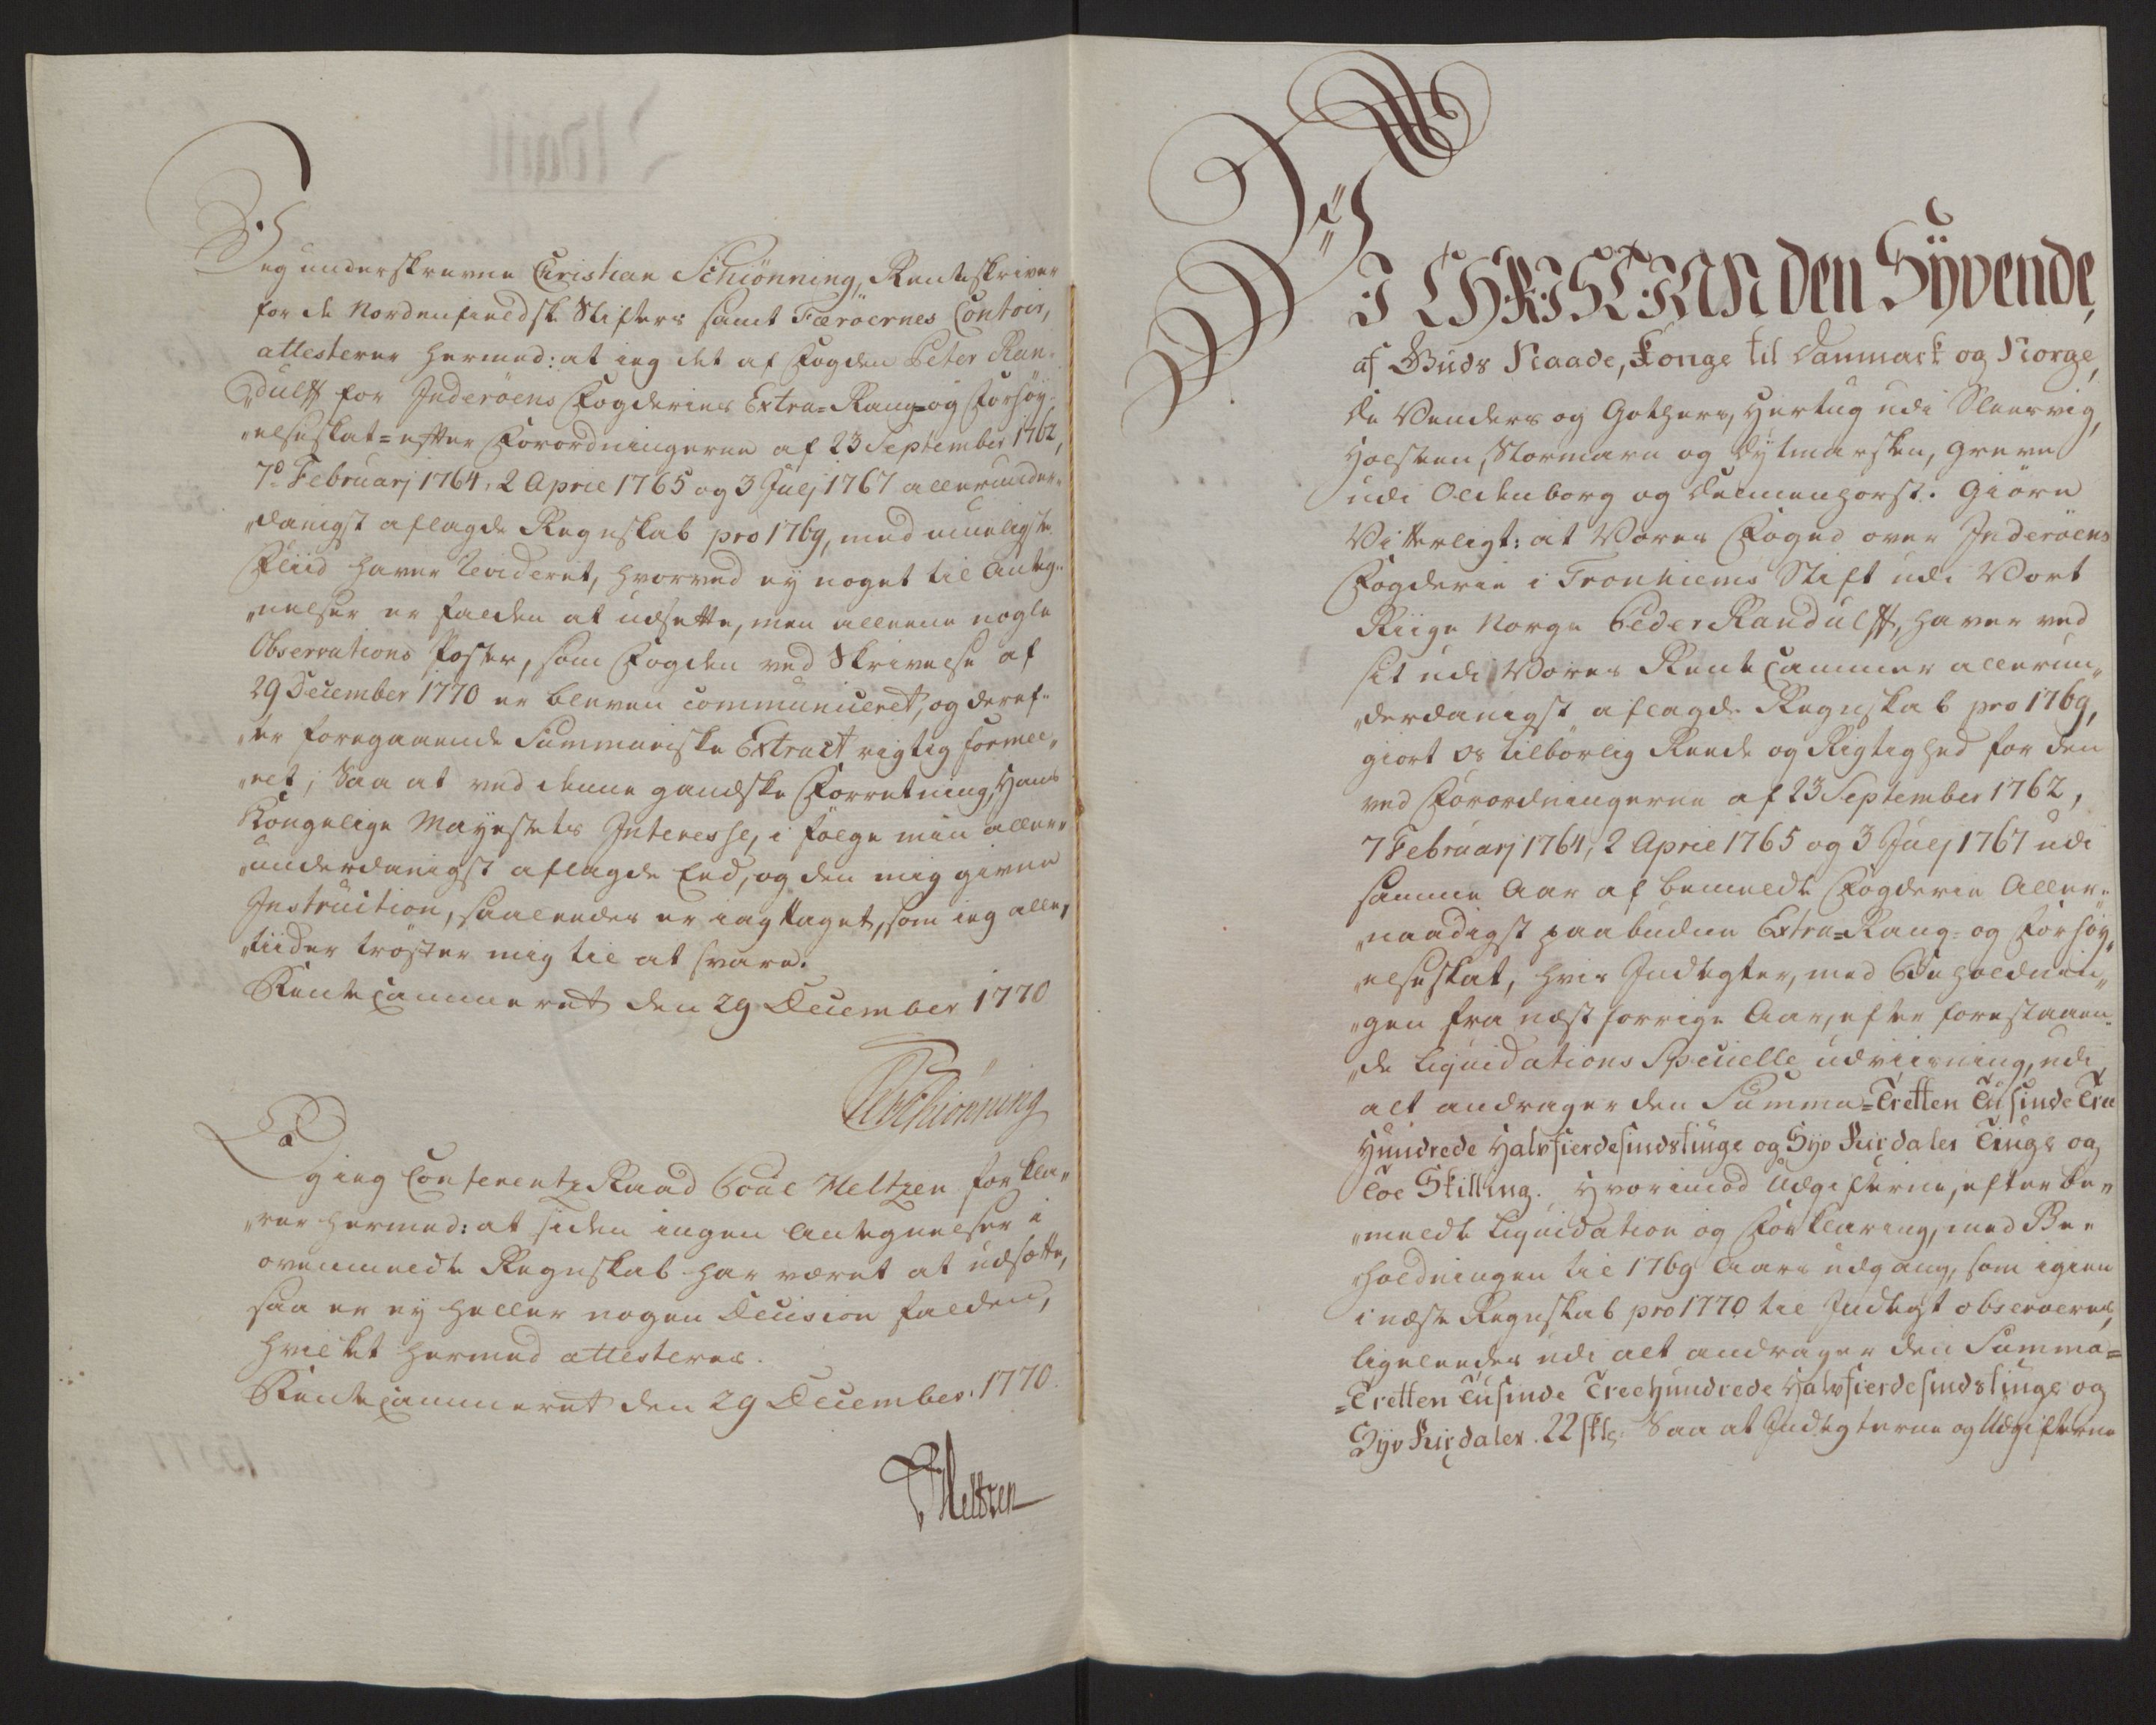 Jeg underskrevne Christian Schiönning, Renteskriver
for de Nordenfieldske Stifters samt Færöernes Contoir,
attesterer hermed: at ieg det af Fogden Peter Ran-
„dulff for Inderöens Fogderies Extra-Rang- og Forhöy-
„elsesskat- efter Forordningerne af 23 September 1762,
7de Februarj 1764, 2 April 1765 og 3 Julj 1767 allerunder-
„danigst aflagde Regnskab pro 1769, med mueligste
Fliid haver Revideret, hvorved ey noget til Anteg-
„nelser er falden at udsette, men alleene nogle
Observations Poster, som Fogden ved Skrivelse af
29 December 1770 er bleven communiceret, og deref-
„ter foregaaende Summariske Extract rigtig formee-
„ret; Saa at ved denne gandske Forretning, Hans
Kongelige Mayestets Interesse, i fölge min aller-
„underdanigst aflagde Eed, og den mig givne
Instruction, saaleedes er iagttaget, som ieg alle-
„tiider tröster mig til at svare.
Rentecammeret den 29 December 1770
CSchiönning
Og ieg Conferentz Raad Poul Heltzen forkla-
„rer hermed: at siden ingen Antegnelser i
ovenmeldte Regnskab har været at udsætte,
saa er ey heller nogen Decision falden,
hvilket hermed attesteres.
Rentecammeret den 29 December 1770.
PHeltzen
VI CHRISTIAN den Syvende,
af Guds Naade, Konge til Danmark og Norge,
de Venders og Gothers, Hertug udi Sleesvig,
Holsteen, Stormarn og Dytmarsken, Greve
udi Oldenborg og Delmenhorst. Giöre
Vitterligt: at Vores Foged over Inderöens
Fogderie i Tronhiems Stift udi Vort
Riige Norge Peder Randulff, haver ved
sit udi Vores Rentecammer allerun-
„derdanigst aflagde Regnskab pro 1769,
giort os tilbörlig Reede og Rigtighed for den
ved Forordningerne af 23 September 1762,
7 Februarj 1764, 2 April 1765 og 3 Julj 1767 udi
samme Aar af bemeldte Fogderie Aller-
„naadigst paabudne Extra-Rang- og Forhöy-
„elsesskat, hvis Indtegter, med Beholdnin-
„gen fra næstforrige Aar, efter forestaaen-
„de Liquidations Specielle udviisning, udi
alt andrager den Summa-Tretten Tusinde Tree
Hundrede Halvfierdesindstiuge og Syv Rixdaler Tiuge og
Toe Skilling. Hvorimod Udgifterne, efter be-
„meldte Liquidation og Forklaring, med Be-
„holdningen til 1769 Aars udgang, som igien
i næste Regnskab pro 1770 til Indtegt observeres,
ligeleedes udi alt andrager den Summa-
-Tretten Tusinde Tree Hundrede Halvfierdesindstiuge og
Syv Rixdaler 22 skl. Saa at Indtegterne og Udgifterne